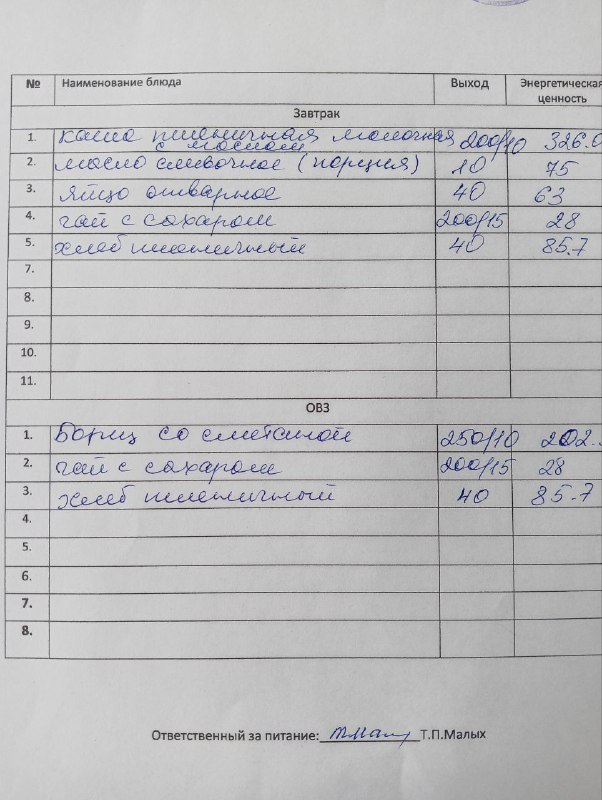 № Наименование блюда Выход Энергетическая ценность
Завтрак
1. каша пшеничная молочная с маслом 200/10 326.0
2. масло сливочное (порция) 10 75
3. яйцо отварное 40 63
4. чай с сахаром 200/15 28
5. хлеб пшеничный 40 85.7
7.
8.
9.
10.
11.
ОВЗ
1. Борщ со сметаной 250/10 202.
2. чай с сахаром 200/15 28
3. хлеб пшеничный 40 85.7
4.
5.
6.
7.
8.
Ответственный за питание: Т.П.Малых